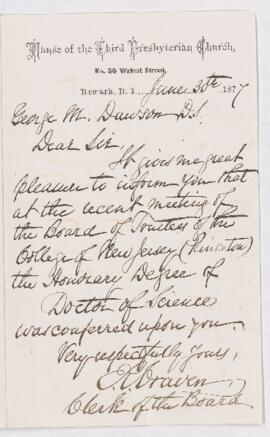 Manse of the Third Presbyterian Church,
No. 35 Walnut Street,
Newark, N. J., June 30th 1877
George M. Dawson D.S.
Dear Sir,
It gives me great
pleasure to inform you that
at the recent meeting of
the Board of Trustees of the
College of New Jersey (Princeton)
the Honorary Degree of
Doctor of Science
was conferred upon you.
Very respectfully Yours,
E.R. Craven
Clerk of the Board